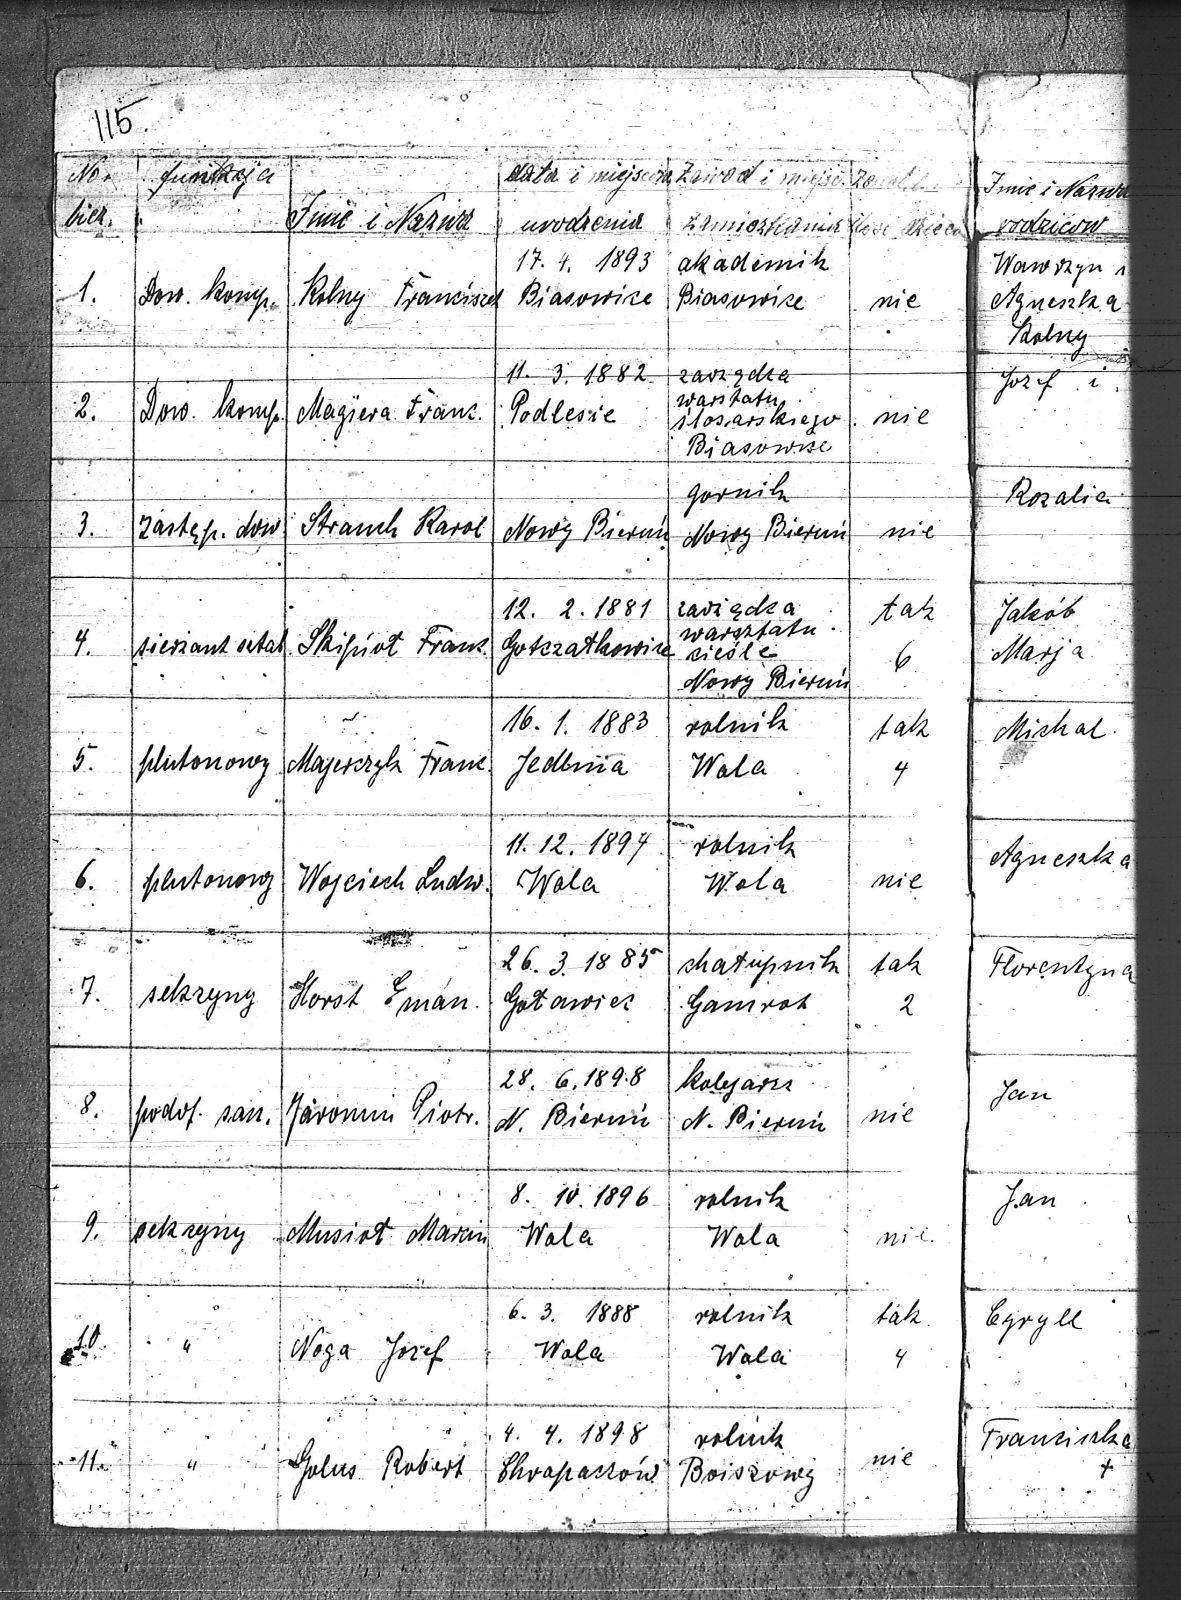 115.
No. funkcja data i miejsce Zawod i miejsc. Imie i Nazwa
bież. Imie i Nazwa urodzenia zamieszkania ilosc dzieci rodzicow
17. 4. 1893 akademik Wawrzyn i
1. Dow. komp. Kolny Franciszek Biasowice Biasowice nie Agneszka
Kolny
11. 3. 1882 zarządca Jozef i
warstatu
2. Dow. komp. Magiera Franc. Podlesie slosarskiego nie
Biasowice
gornik Rozalia
3. zastęp. dow. Strauch Karol Nowy Bieruń Nowy Bieruń nie
12. 2. 1881 zarządca tak Jakób
warsztatu
4. sierzant sztab. Skipioł Franc. Gotczałkowice cieśle 6 Marja
Nowy Bieruń
16. 1. 1883 rolnik tak Michal
5. plutonowy Majerczyk Franc. Jedlina Wola 4
11. 12. 1894 rolnik Agneszka
6. plutonowy Wojciech Ludw. Wola Wola nie
26. 3. 1885 chałupnik tak Florentyna
7. sekcyjny Horst Eman. Goławiec Gamrot 2
28. 6. 1898 kolejarz Jan
8. podof. san. Jaromin Piotr. N. Bieruń N. Bieruń nie
8. 10. 1896 rolnik Jan
9. sekcyjny Musioł Marcin Wola Wola nie.
6. 3. 1888 rolnik tak. Cyryll
10. " Noga Jozef Wola Wola 4
4. 4. 1898 rolnik Franciszka
11. " Golus Robert Chropaczów Boiszowy nie +